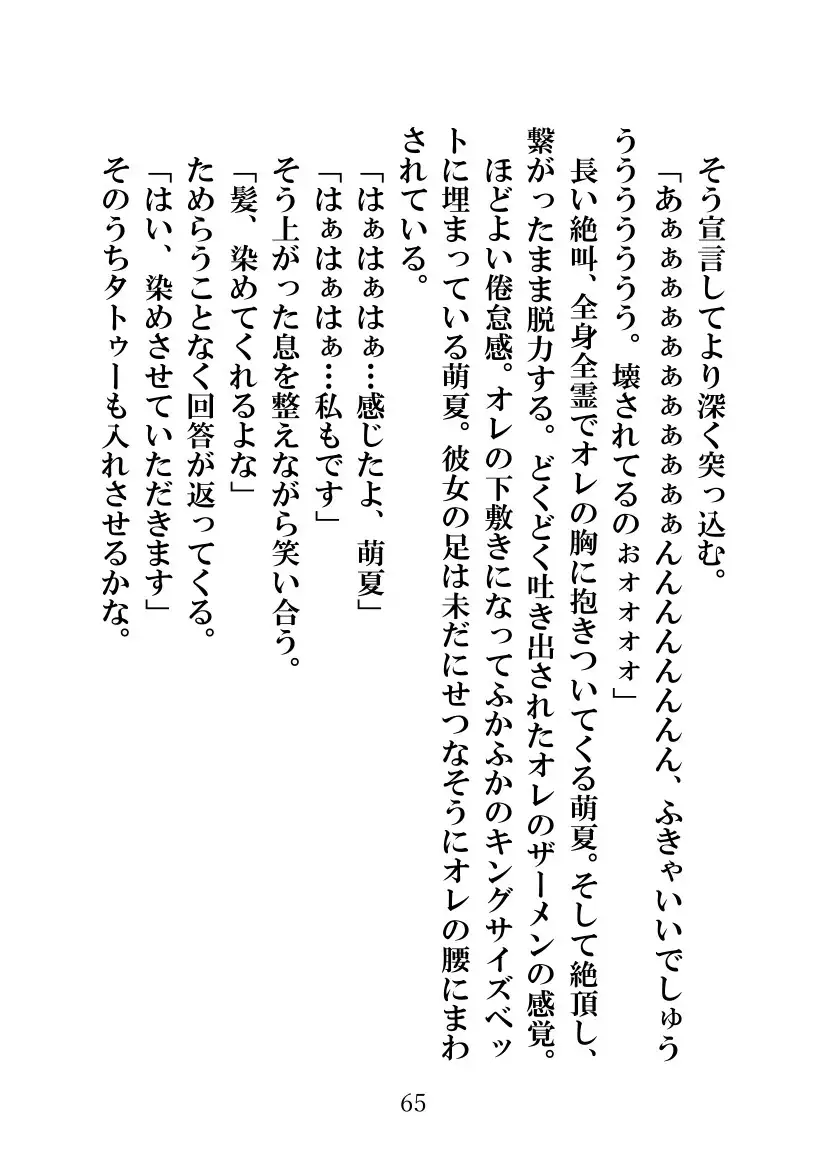 そう宣言してより深く突っ込む。
「あぁぁぁぁぁぁぁぁぁぁぁぁんんんんんんん、ふきゃいいでしゅう
うううううう。壊されてるのぉォォォォ」
長い絶叫、全身全霊でオレの胸に抱きついてくる萌夏。そして絶頂し、
繋がったまま脱力する。どくどく吐き出されたオレのザーメンの感覚。
ほどよい倦怠感。オレの下敷きになってふかふかのキングサイズベッ
トに埋まっている萌夏。彼女の足は未だにせつなそうにオレの腰にまわ
されている。
「はぁはぁはぁ…感じたよ、萌夏」
「はぁはぁはぁ…私もです」
そう上がった息を整えながら笑い合う。
「髪、染めてくれるよな」
ためらうことなく回答が返ってくる。
「はい、染めさせていただきます」
そのうちタトゥーも入れさせるかな。
65